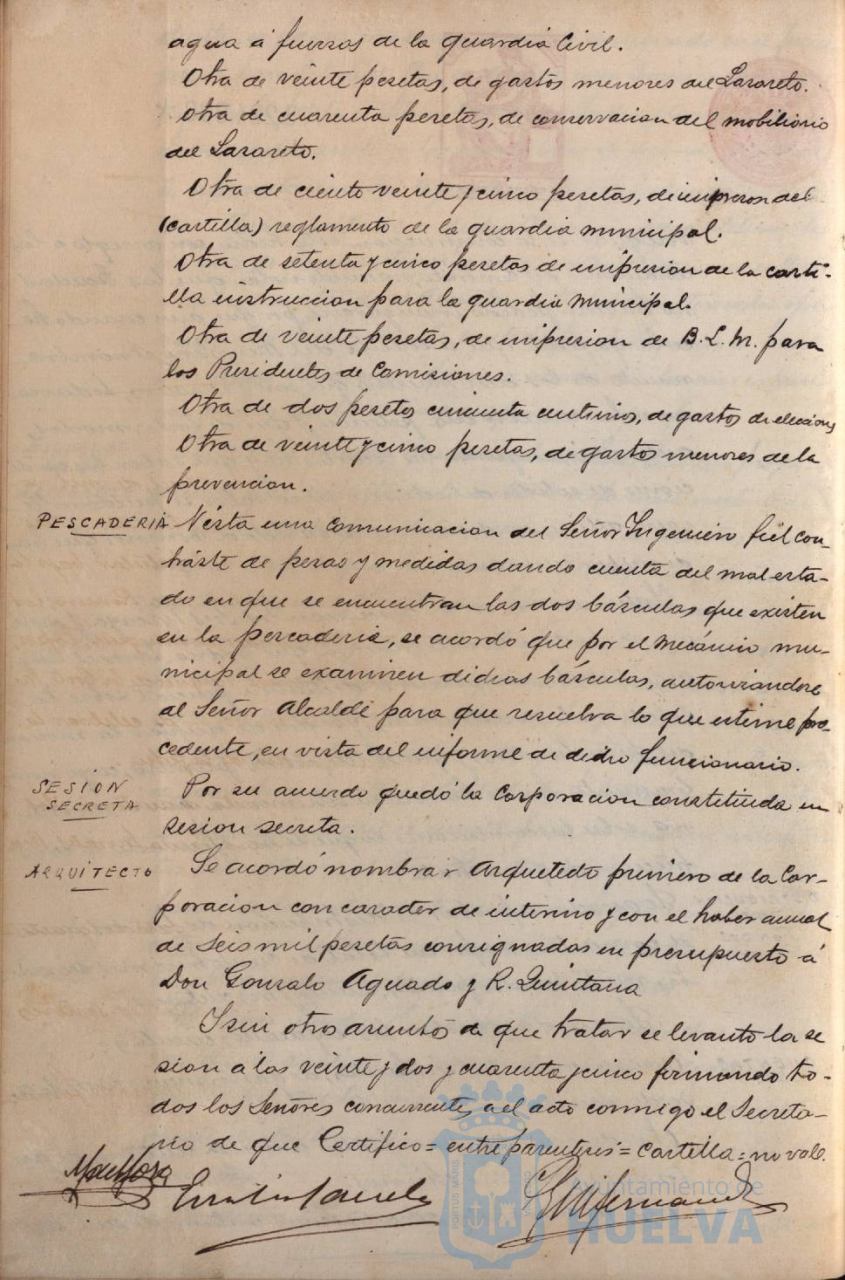 agua á fuerzas de la guardia Civil.
Otra de veinte pesetas, de gastos menores del Lazareto.
Otra de cuarenta pesetas, de conservacion del mobiliario
del Lazareto.
Otra de ciento veinte y cinco pesetas, de impreson del
(cartilla) reglamento de la guardia municipal.
Otra de setenta y cinco pesetas de impresion de la carti-
lla instruccion para la guardia municipal.
Otra de veinte pesetas, de impresion de B. L. M. para
los Presidentes de Comisiones.
Otra de dos pesetas cincuenta centimos, de gastos de elecciones
Otra de veinte y cinco pesetas, de gastos menores de la
prevencion.
PESCADERIA Vista una comunicacion del Señor Ingeniero fiel con-
traste de pesas y medidas dando cuenta del mal esta-
do en que se encuentran las dos básculas que existen
en la pescaderia, se acordó que por el mecánico mu-
nicipal se examinen dichas básculas, autorizandose
al Señor Alcalde para que resuelva lo que estime pro-
cedente, en vista del informe de dicho funcionario.
SESION
SECRETA
Por su acuerdo quedó la Corporacion constituida en
sesion secreta.
ARQUITECTO Se acordó nombrar Arquitecto primero de la Cor-
poracion con caracter de interino y con el haber anual
de seis mil pesetas consignadas en presupuesto á
Don Gonzalo Aguado y R. Quintana
Y sin otros asuntos de que tratar se levanto la se
sion a las veinte y dos y cuarenta y cinco firmando to-
dos los Señores concurrentes al acto conmigo el Secreta-
rio de que Certifico = entre parentesis = cartilla = no vale.
Ayuntamiento de
HUELVA